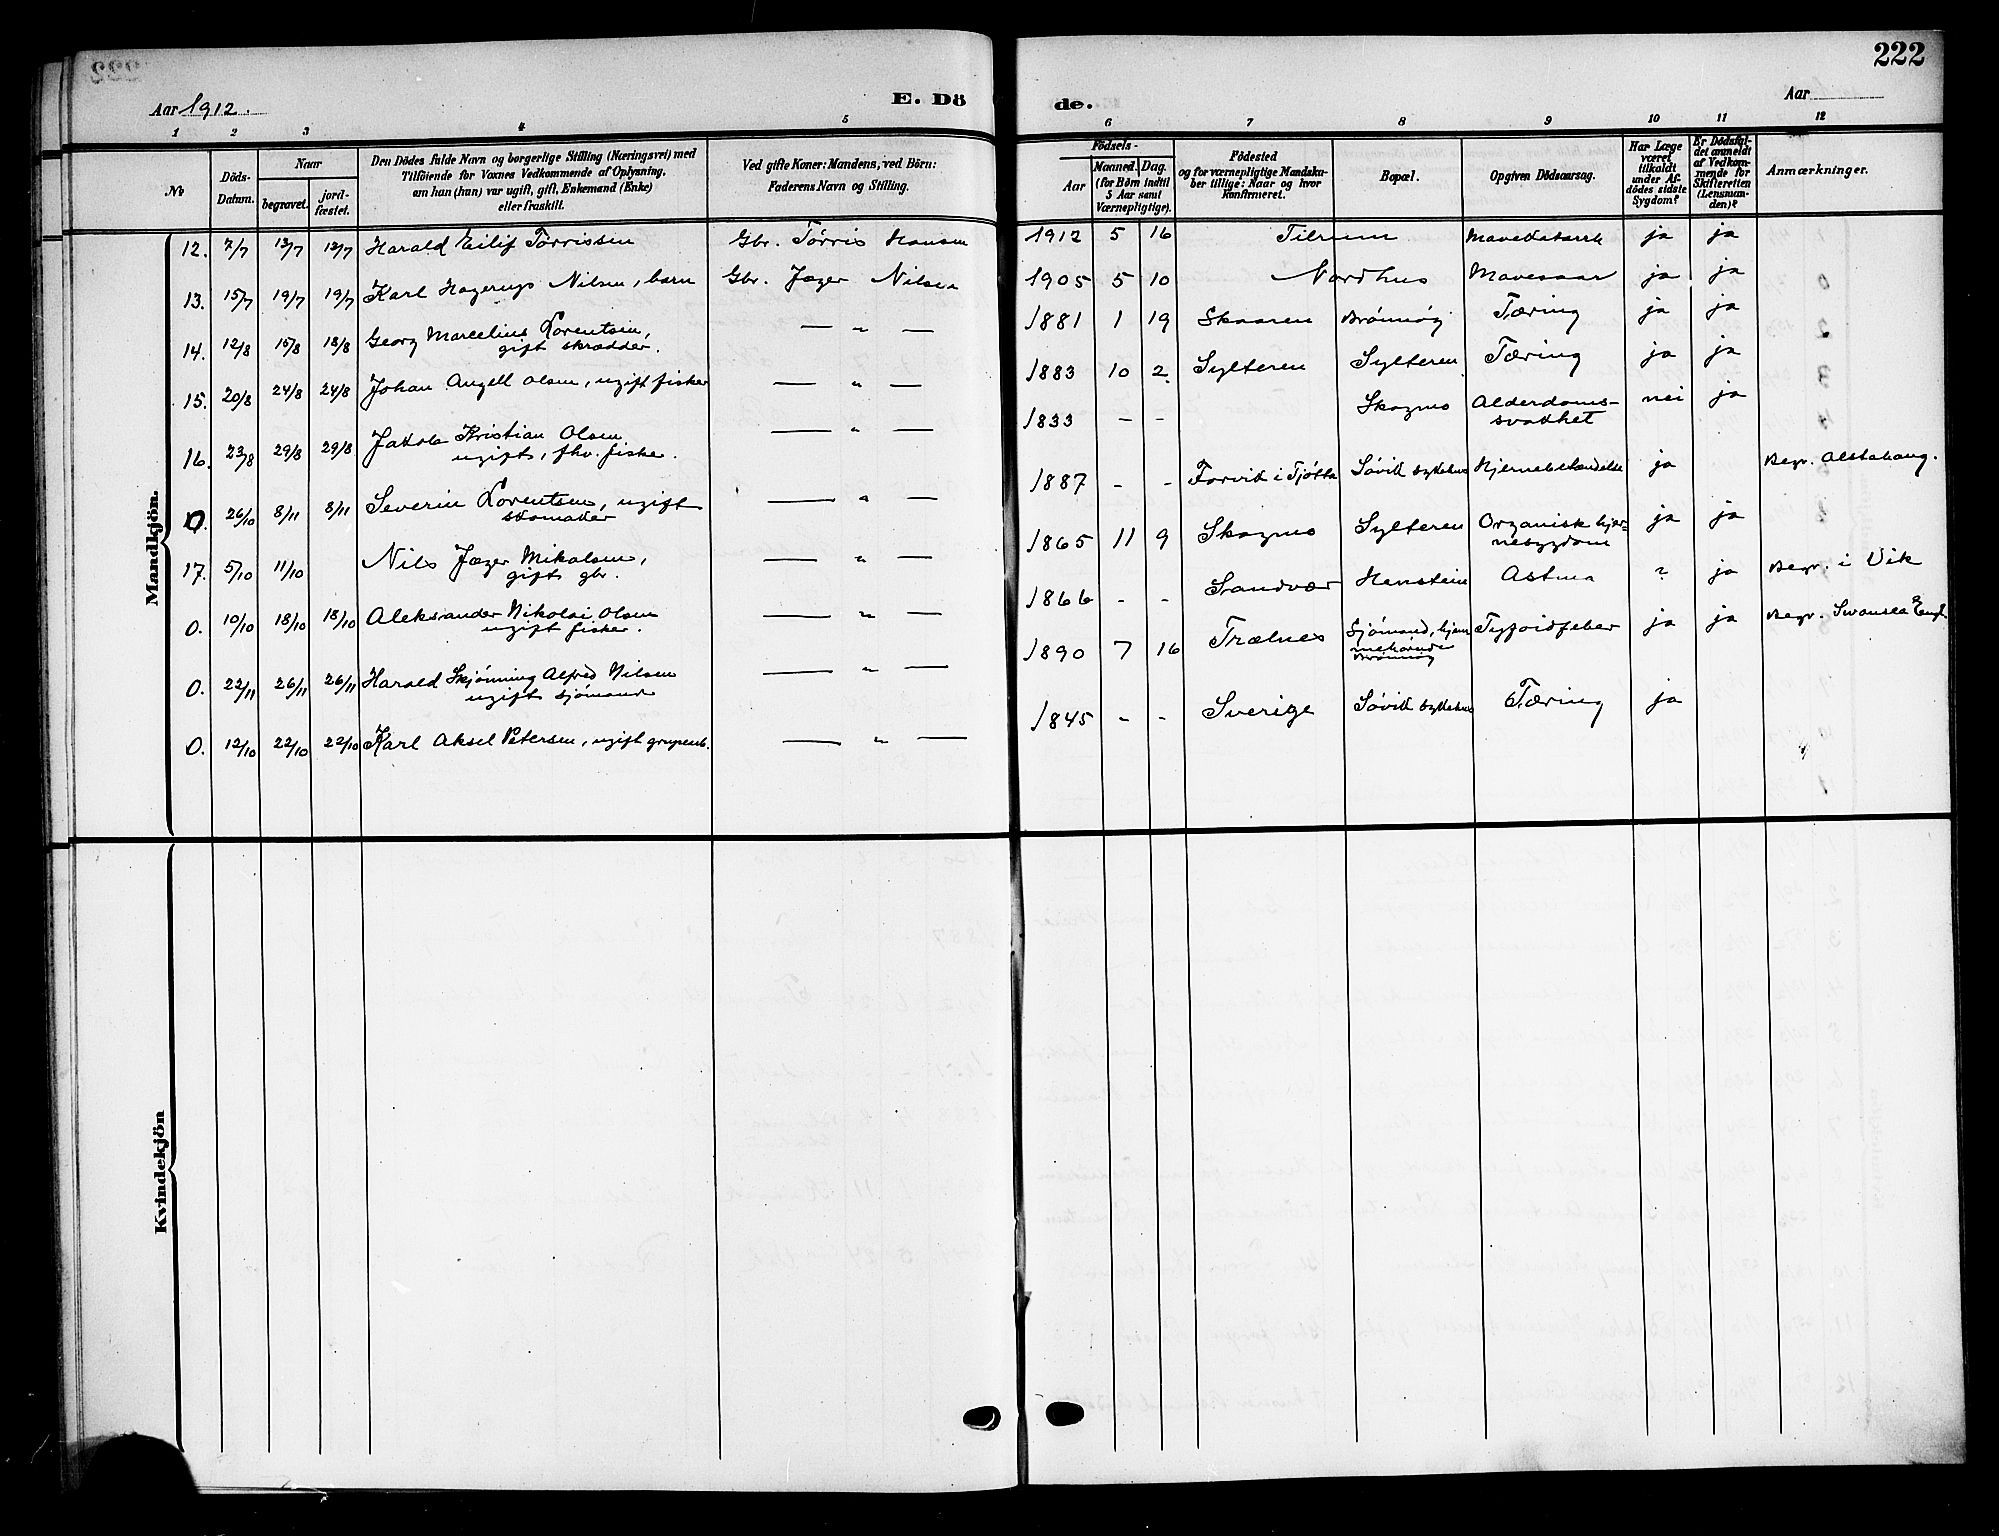 222
Aar 1912.
E. Dö
de.
Aar
1 2 3 4 5 6 7 8 9 10 11 12
No
Döds-
Datum.
Naar
begravet.
jord-
fæstet.
Den Dödes fulde Navn og borgerlige Stilling (Næringsvei) med
Tilföiende for Voxnes Vedkommende af Oplysning,
om han (hun) var ugift, gift, Enkemand (Enke)
eller fraskilt.
Ved gifte Koner: Mandens, ved Börn:
Faderens Navn og Stilling.
Födsels-
Aar
Maaned. Dag.
(for Børn indtil
5 Aar samt
Værnepligtige).
Födested
og for værnepligtige Mandska-
ber tillige: Naar og hvor
konfirmeret.
Bopæl.
Opgiven Dödsaarsag.
Har Læge
været
tilkaldt
under Af-
dödes sidste
Sygdom?
Er Dödsfal-
det anmeldt
af Vedkom-
mende for
Skifteretten
(Lensman-
den)?
Anmærkninger.
Mandkjön.
12. 7/7 13/7 13/7 Harald Eilif Tørrissen Gbr. Tørris Hansen 1912 5 16 Tilrum Mavekatarrh ja ja
13. 15/7 19/7 19/7 Karl Hagerup Nilsen, barn Gbr. Jæger Nilsen 1905 5 10 Nordhus Mavesaar ja ja
14. 12/8 15/8 18/8 Georg Marcelius Lorentsen,
gift skrædder. — " — 1881 1 19 Skaaren Brønnøy Tæring ja ja
15. 20/8 24/8 24/8 Johan Angell Olsen, ugift fisker — " — 1883 10 2 Sylteren Sylteren Tæring ja ja
16. 23/8 29/8 29/8 Jakob Kristian Olsen
ugift, fhv. fisker. — " — 1833 - - Skogmo Alderdoms-
svakhet nei ja
0. 26/10 8/11 8/11 Severin Lorentsen, ugift
skomaker — " — 1887 - - Forvik i Tjøtta Søvik sykehus Hjernebetændelse ja Begr. Alstahaug.
17. 5/10 11/10 Nils Jæger Mikalsen,
gift gbr. — " — 1865 11 9 Skogmo Sylteren Organisk hjer-
nesygdom ja ja
0. 10/10 18/10 18/10 Aleksander Nikolai Olsen
ugift fisker. — " — 1866 - - Sandvær Henstein Astma ? ja Begr. i Vik
0. 22/11 26/11 26/11 Harald Skjønning Alfred Nilsen
ugift sjømand — " — 1890 7 16 Trælnes Sjømand, hjem
mehørende
Brønnøy Tyfoidfeber ja ja Begr. Swansea Engl.
0. 12/10 22/10 22/10 Karl Aksel Petersen, ugift grubearb. — " — 1845 - - Sverige Søvik sykehus Tæring ja
Kvindekjön